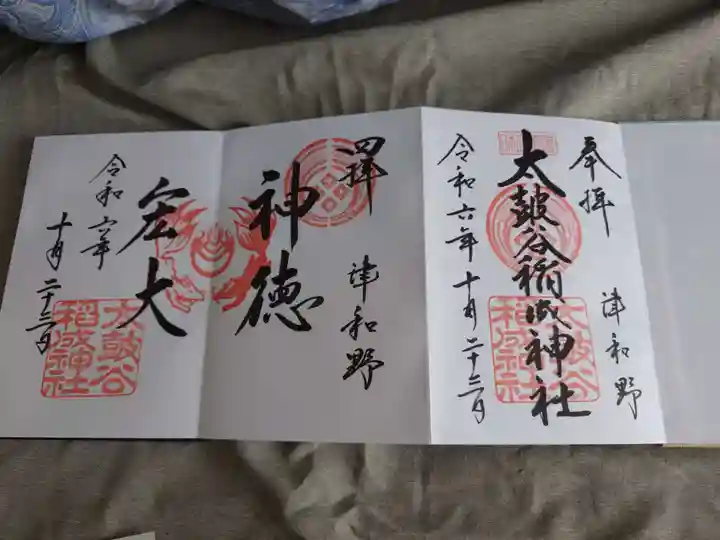 奉拝
津和野
太皷谷稲成神社
太皷谷
稲成神社
令和六年十月二十三日
四拝
津和野
神徳
宏大
令和六年
十月二十三日
太皷谷
稲成神社